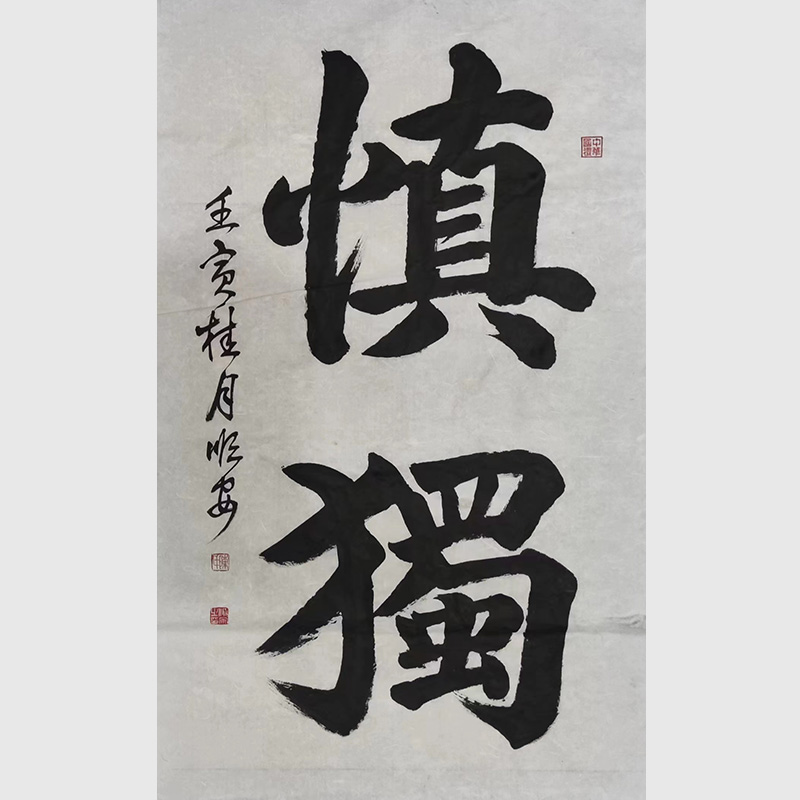 慎獨
壬寅桂月順安